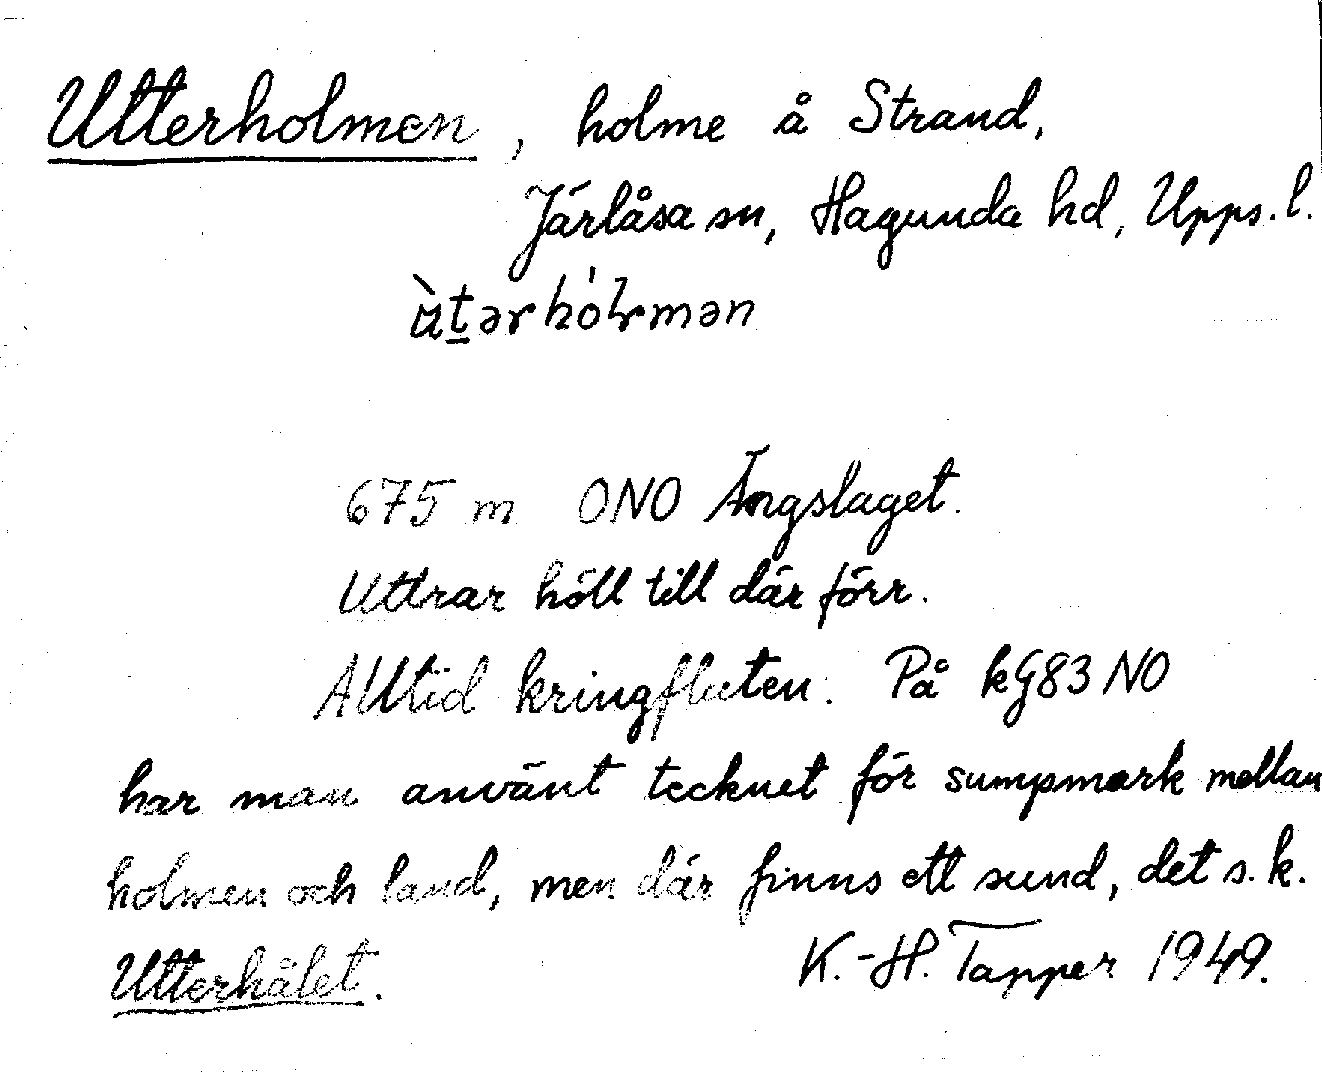 Utterholmen, holme å Strand,
Järlåsa sn, Hagunda hd, Upps. l.
675 m ONO Ängslaget.
Uttrar höll till där förr.
Alltid kringfluten. På kG83 NO
har man använt tecknet för sumpmark mellan
holmen och land, men där finns ett sund, det s.k.
Utterhålet.
K.-H. Tapper 1949.